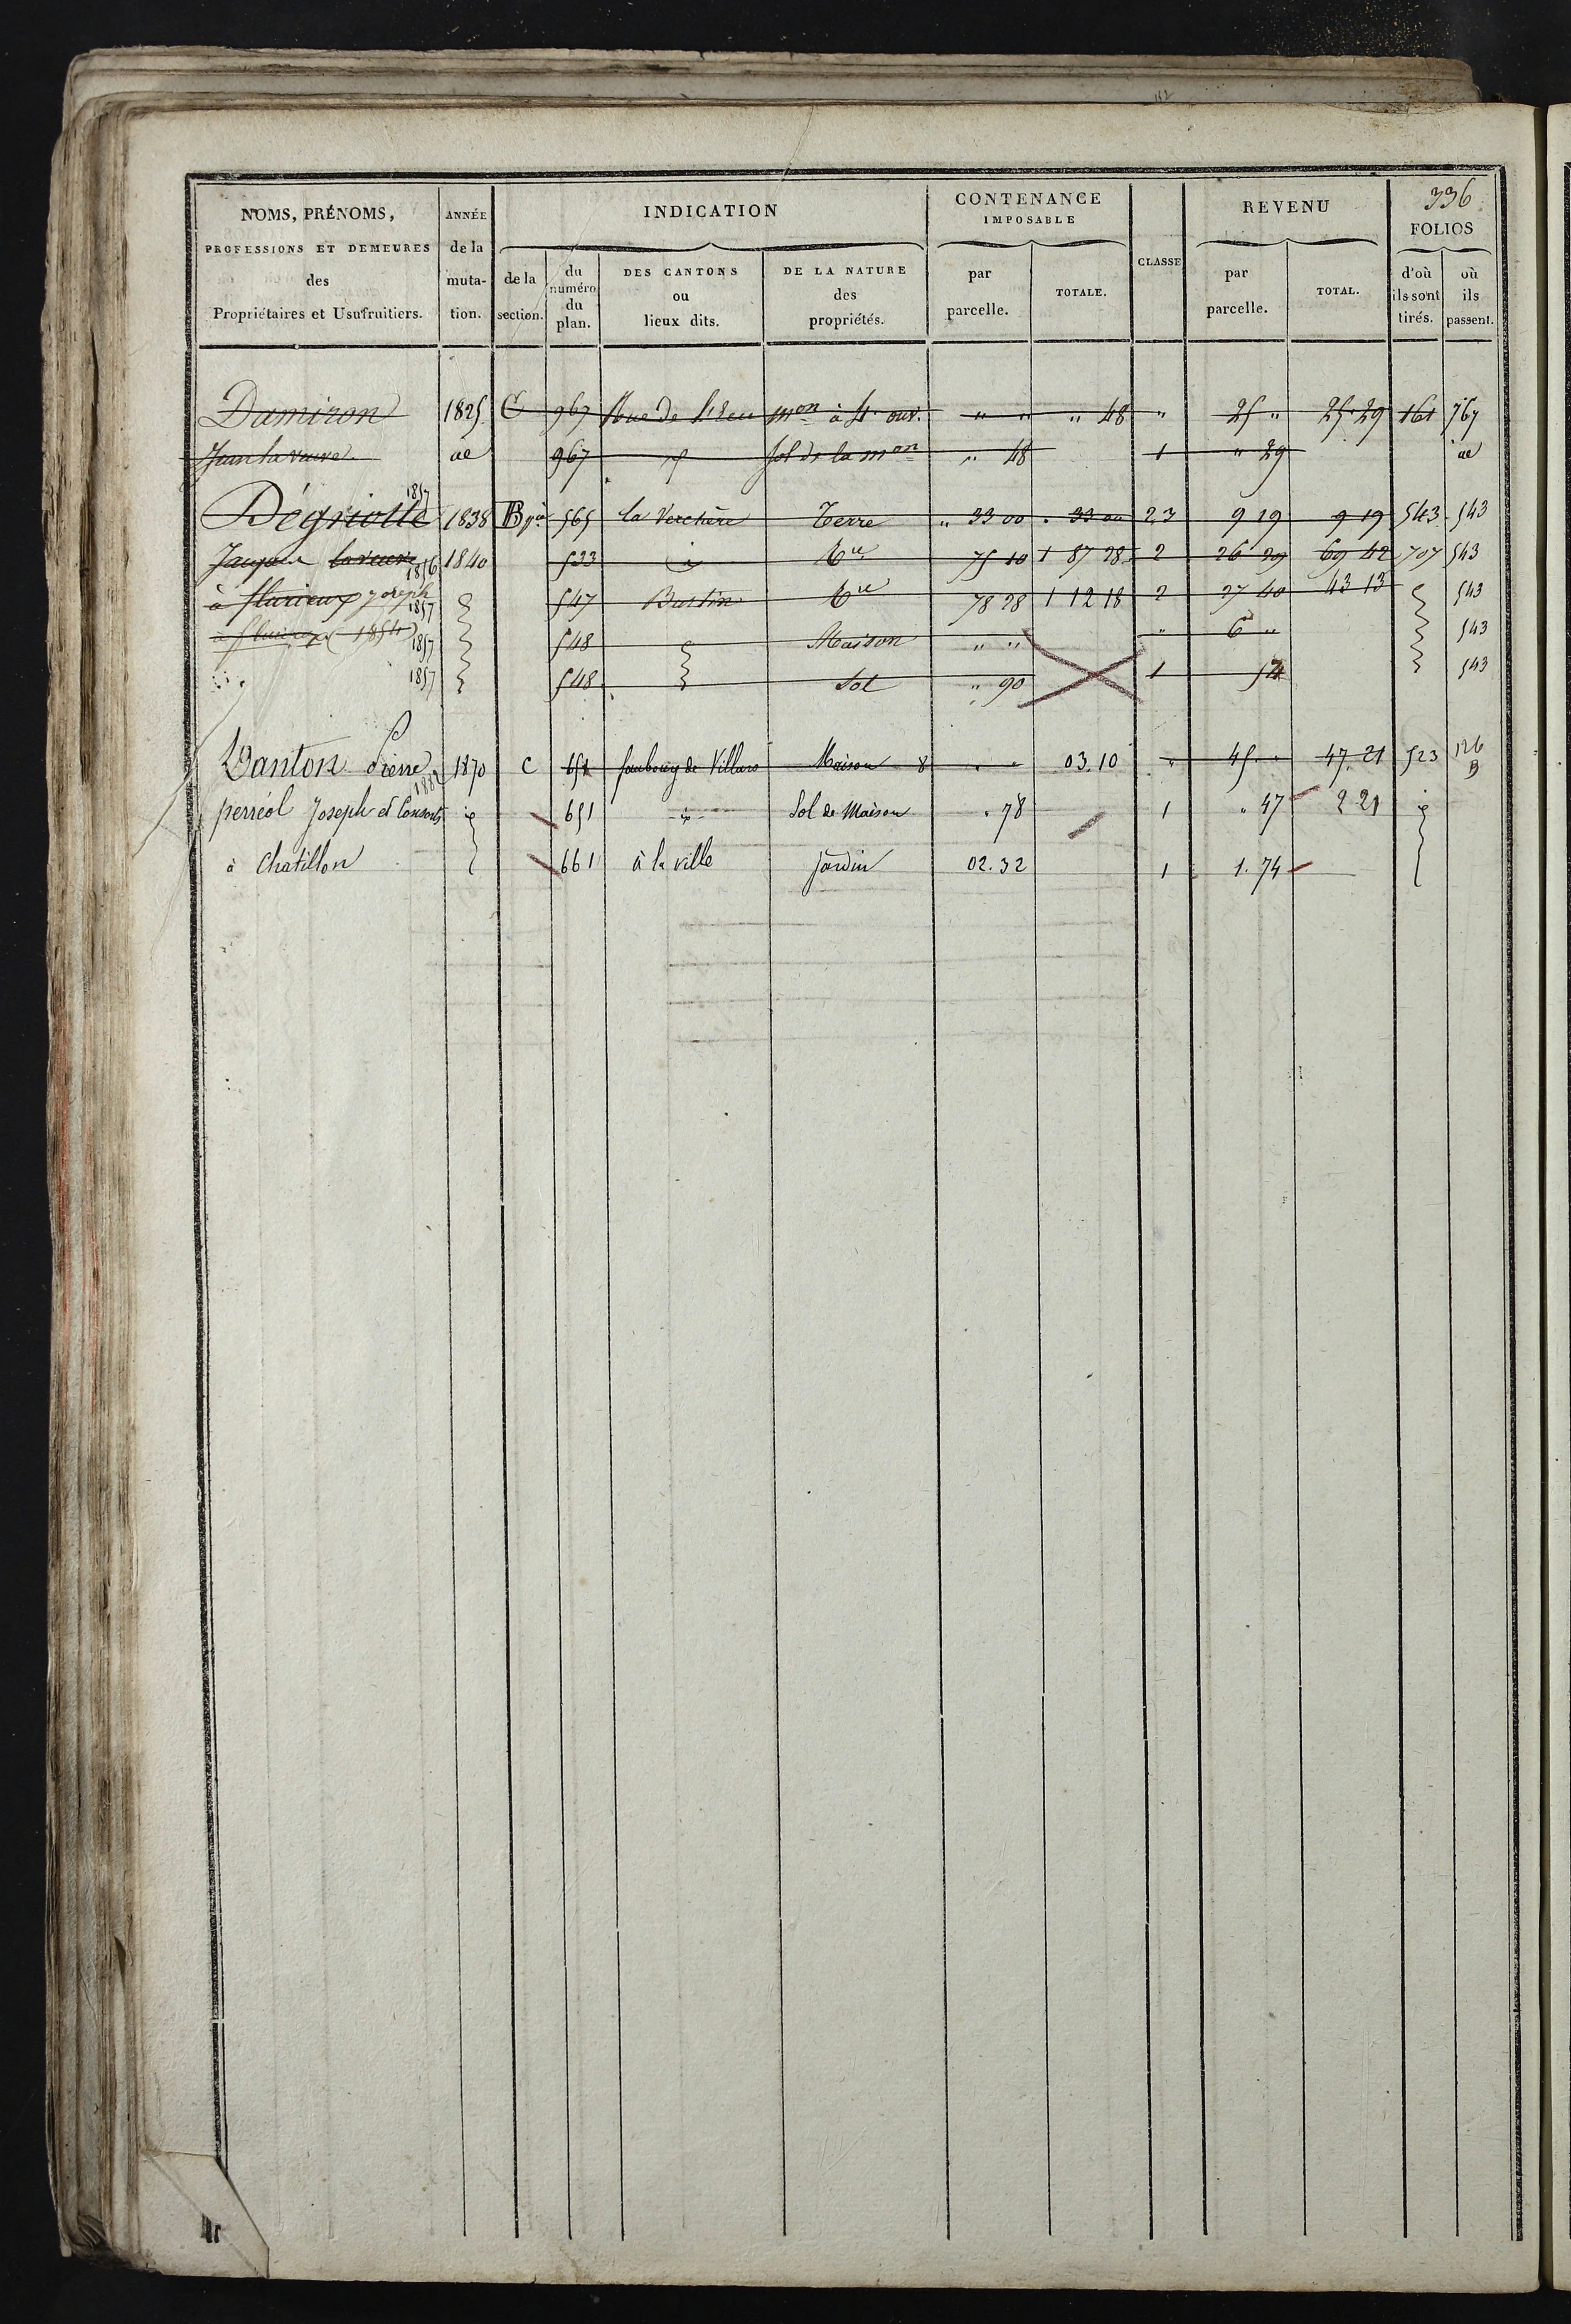 112
336
NOMS, PRÉNOMS,
PROFESSIONS ET DEMEURES
des
Propriétaires et Usufruitiers.
ANNÉE
de la
muta-
tion.
INDICATION
de la
section.
du
numéro
du
plan.
DES CANTONS
ou
lieux dits.
DE LA NATURE
des
propriétés.
CONTENANCE
IMPOSABLE
par
parcelle.
TOTALE.
CLASSE
REVENU
par
parcelle.
TOTAL.
FOLIOS
d'où
ils sont
tirés.
où
ils
passent.
Damiron 1825 C 967 Rue de mon à 4 ouv. " " " 48 " 25 " 25 29 161 767
Jean la veuve 967 Sol de la mon " 48 1 " 29
1857
Dégriolle 1838 B 565 la Verchère Terre " 33 00 " 33 00 2.3 9 19 9 19 543 543
Jacques la veuve 1856 1840 533 id 75 10 1 87 28 2 26 29 69 42 707 543
à flurieux Joseph 1857 547 Bastin 78 28 1 12 18 2 27 40 43 13 543
à (1854) 1857 548 Maison " " " 6 " 543
1857 548 Sol " 90 1 54 543
Danton Pierre 1870 C 651 faubourg de Villars Maison 8 " " 03.10 " 45 " 47.21 523 126 B
1882
perréol Joseph et Consorts 651 Sol de Maison . 78 1 " 47 2 21
à Chatillon 661 à la ville jardin 02.32 1 1.74